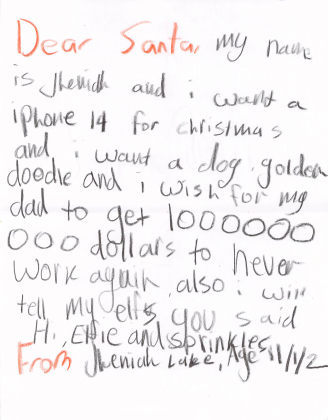 Dear Santa, my name
is Jheniah and i want a
iphone 14 for christmas
and i want a dog golden
doodle and i wish for my
dad to get 1000000
000 dollars to never
work again, also i will
tell my elfs you said
Hi, Elfie and sprinkles
From Jheniah Lake, Age 11/1/2